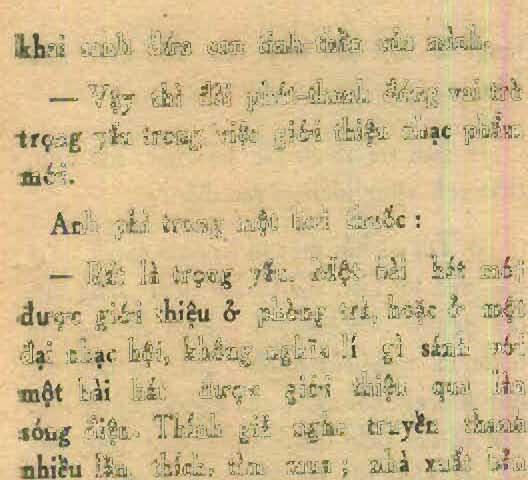 khai sinh đứa con tinh-thần của mình.
— Vậy thì đài phát-thanh đóng vai trò
trọng yếu trong việc giới thiệu nhạc phẩm
mới.
Anh phì trong một hơi thuốc :
— Rất là trọng yếu. Một bài hát mới
được giới thiệu ở phòng trà, hoặc ở một
đại nhạc hội, không nghĩa lí gì sánh với
một bài hát được giới thiệu qua làn
sóng điện. Thính giả nghe truyền thanh
nhiều lần, thích, tìm mua ; nhà xuất bản